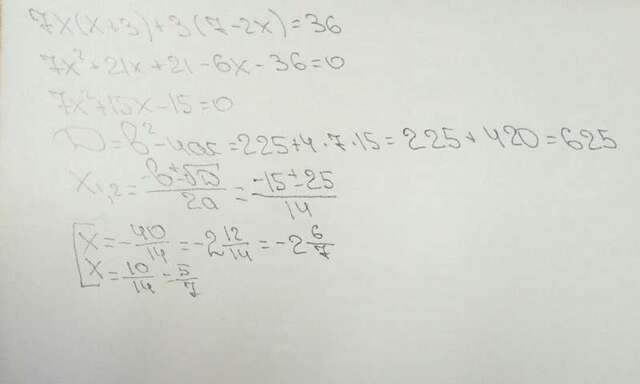 7x(x+3)+3(7-2x)=36
7x²+21x+21-6x-36=0
7x²+15x-15=0
D=b²-4ac=225+4·7·15=225+420=625
x₁,₂=(-b±√D)/(2a)=(-15±25)/14
[x=-40/14=-2 12/14=-2 6/7
[x=10/14=5/7